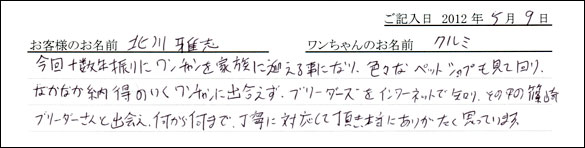 ご記入日 2012年 5月 9日
お客様のお名前 北川 雅志 ワンちゃんのお名前 クルミ
今回十数年振りにワンチャンを家族に迎える事になり、色々なペットショップも見て回り、
なかなか納得のいくワンチャンに出会えず、ブリーダーズをインターネットで知り、その中の篠崎
ブリーダーさんと出会え、何から何まで、丁寧に対応して頂き本当にありがたく思っています。